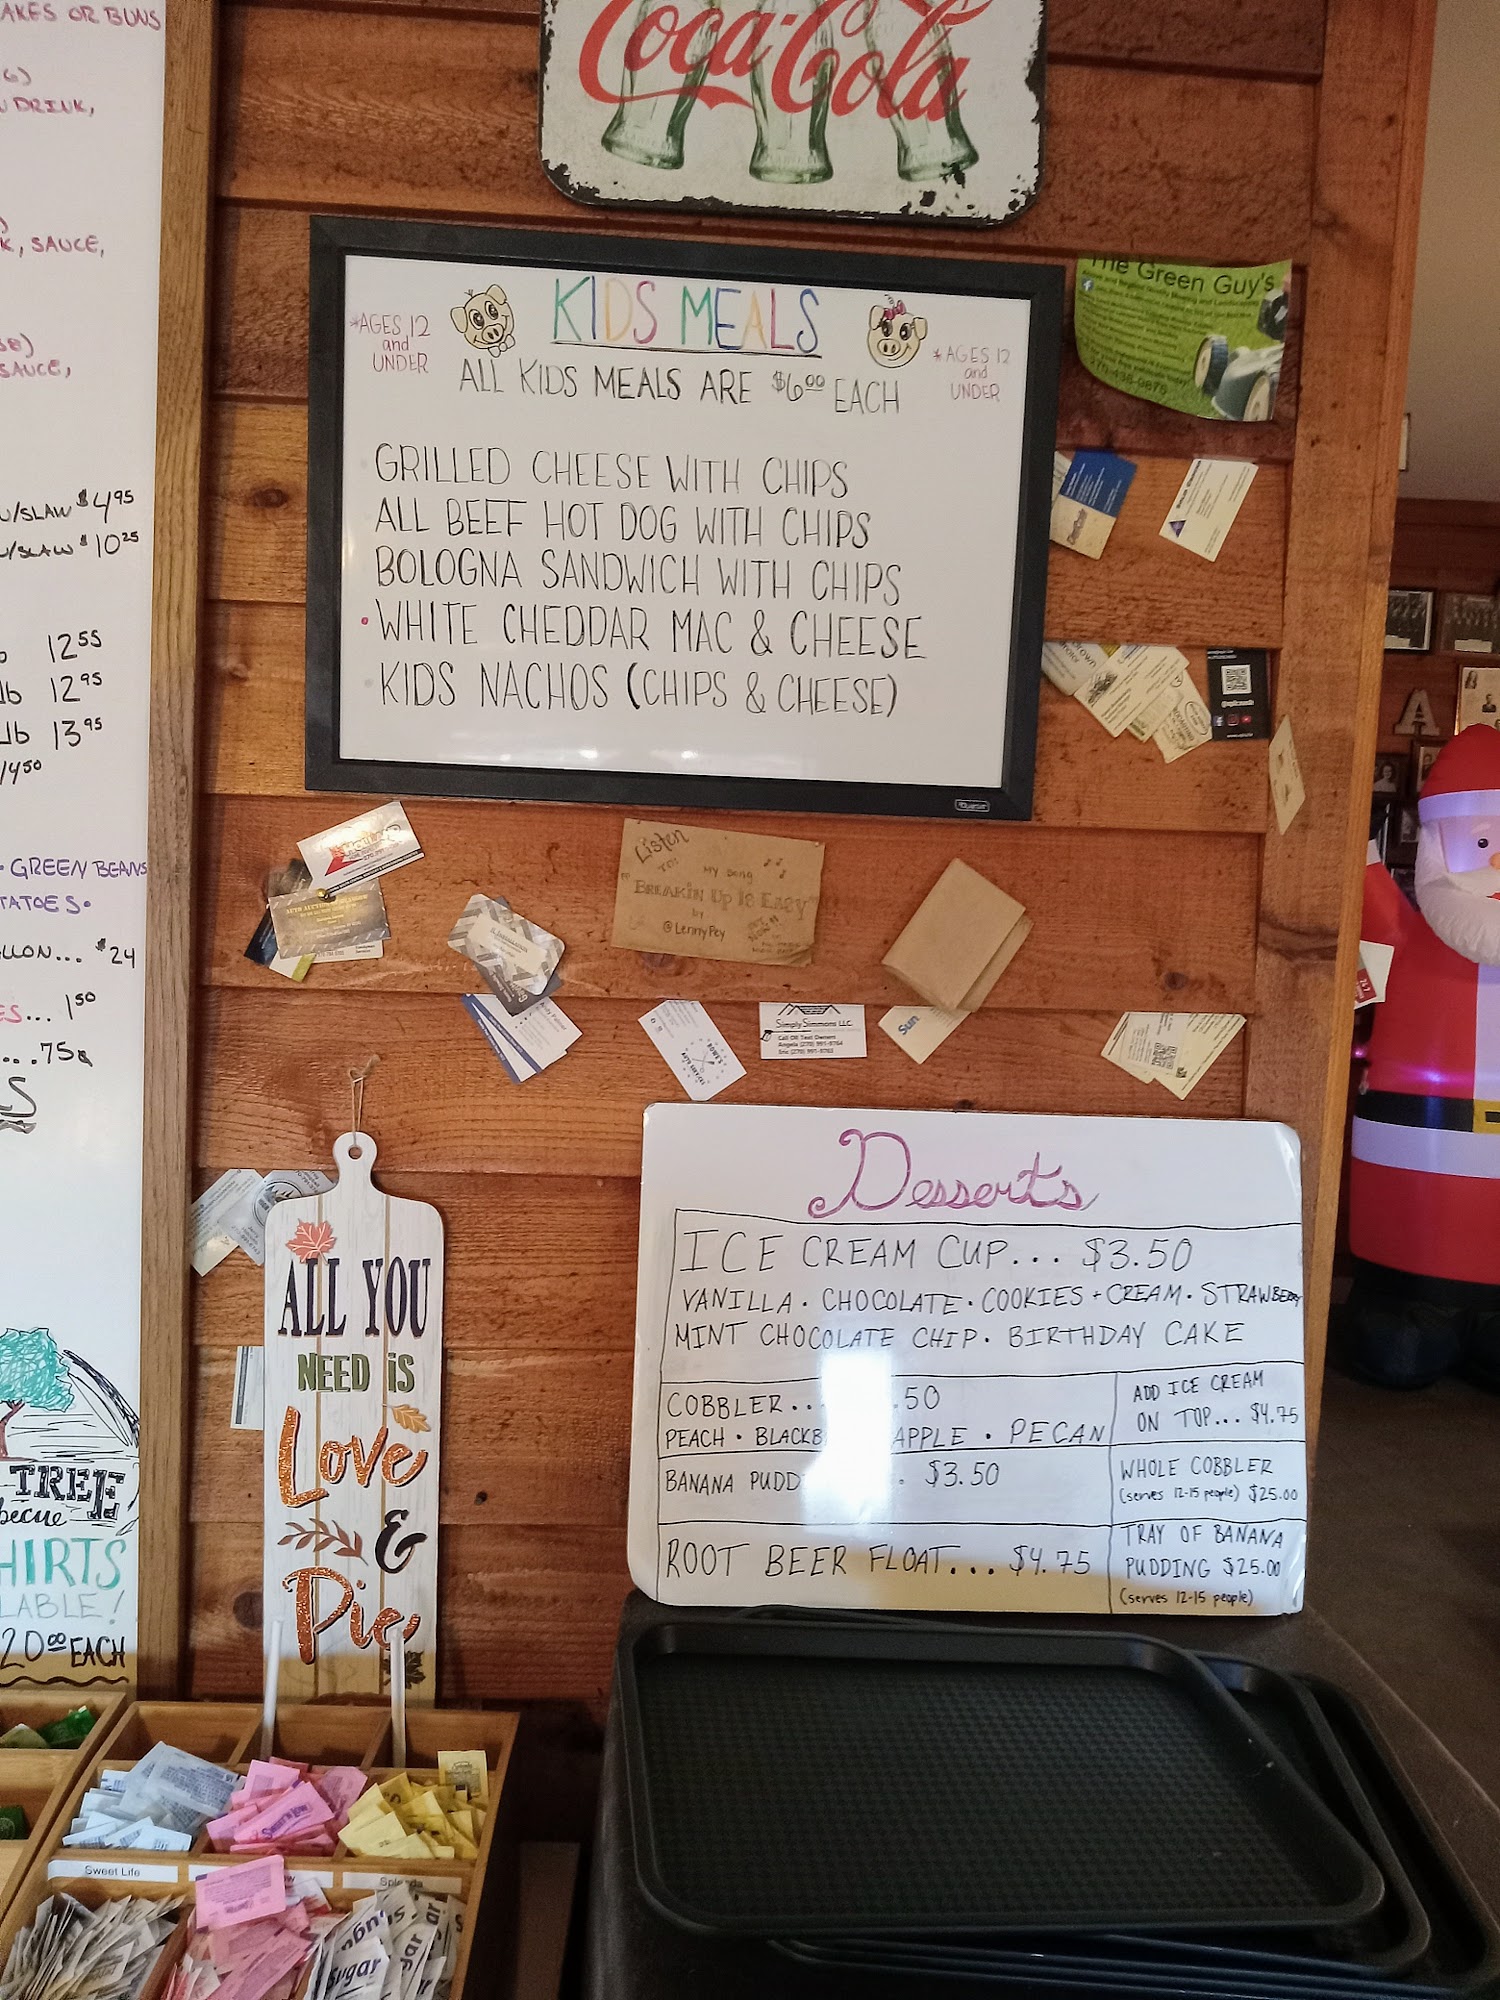 AKES OR BUNS
DRINK,
SAUCE,
SAUCE,
/SLAW $4.95
/SLAW $10.25
12.55
lb 12.95
lb 13.95
14.50
• GREEN BEANS
TATOES •
LLON... $24
ES... 1.50
....75¢
TREE
becue
HIRTS
LABLE!
20.00 EACH
Coca-Cola
*AGES 12
and
UNDER
KIDS MEALS
*AGES 12
and
UNDER
ALL KIDS MEALS ARE $6.00 EACH
GRILLED CHEESE WITH CHIPS
ALL BEEF HOT DOG WITH CHIPS
BOLOGNA SANDWICH WITH CHIPS
•WHITE CHEDDAR MAC & CHEESE
KIDS NACHOS (CHIPS & CHEESE)
Quartet
The Green Guy's
Listen
TO:
MY Song
"BREAKIN Up Is Easy"
by
@LennyPey
Simply Simmons LLC
Call OR Text Owners
Angela (270) 991-9764
Eric (270) 991-9763
Sun
A
ALL YOU
NEED IS
Love
&
Pie
Desserts
ICE CREAM CUP... $3.50
VANILLA • CHOCOLATE • COOKIES + CREAM • STRAWBERRY
MINT CHOCOLATE CHIP • BIRTHDAY CAKE
COBBLER... .50
PEACH • BLACKB APPLE • PECAN
ADD ICE CREAM
ON TOP... $4.75
BANANA PUDD . $3.50
WHOLE COBBLER
(serves 12-15 people) $25.00
ROOT BEER FLOAT... $4.75
TRAY OF BANANA
PUDDING $25.00
(serves 12-15 people)
Sweet Life
Sugar